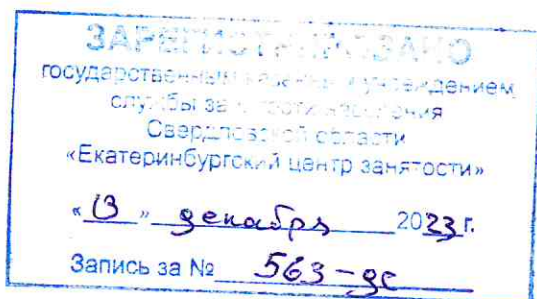 ЗАРЕГИСТРИРОВАНО
государственным казенным учреждением
службы занятости населения
Свердловской области
«Екатеринбургский центр занятости»
«13» декабря 2023 г.
Запись за № 563-дс